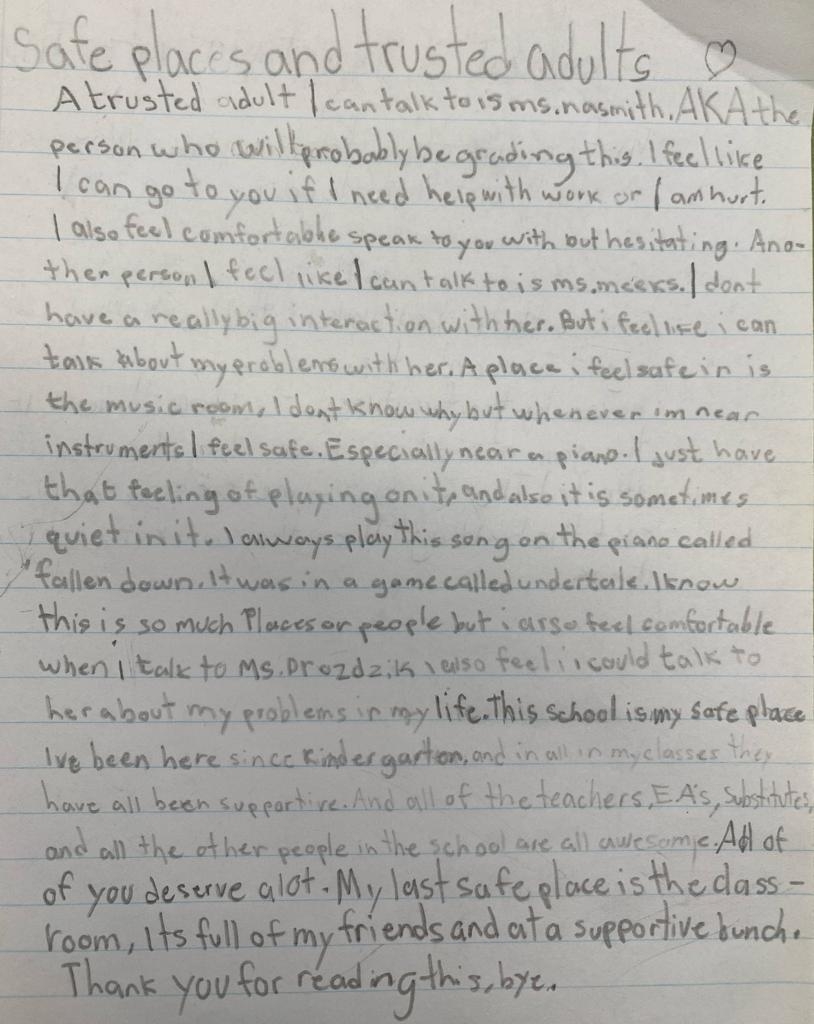 Safe places and trusted adults ♡
A trusted adult I can talk to is ms. nasmith. AKA the
person who will probably be grading this. I feel like
I can go to you if I need help with work or I am hurt.
I also feel comfortable speak to you with but hesitating. Ano-
ther person I feel like I can talk to is ms. meeks. I dont
have a really big interaction with her. But i feel like i can
talk about my problems with her. A place i feel safe in is
the music room, I dont know why but whenever im near
instruments I feel safe. Especially near a piano. I just have
that feeling of playing on it, and also it is sometimes
quiet in it. I always play this song on the piano called
fallen down. It was in a game called undertale. I know
this is so much Places or people but i also feel comfortable
when I talk to Ms. Drozdzik i also feel i could talk to
her about my problems in my life. This school is my safe place
Ive been here since kindergarten, and in all in my classes they
have all been supportive. And all of the teachers, E.A's, Substitutes,
and all the other people in the school are all awesome. All of
of you deserve alot. My last safe place is the class-
room, Its full of my friends and a supportive bunch.
Thank you for reading this, bye.